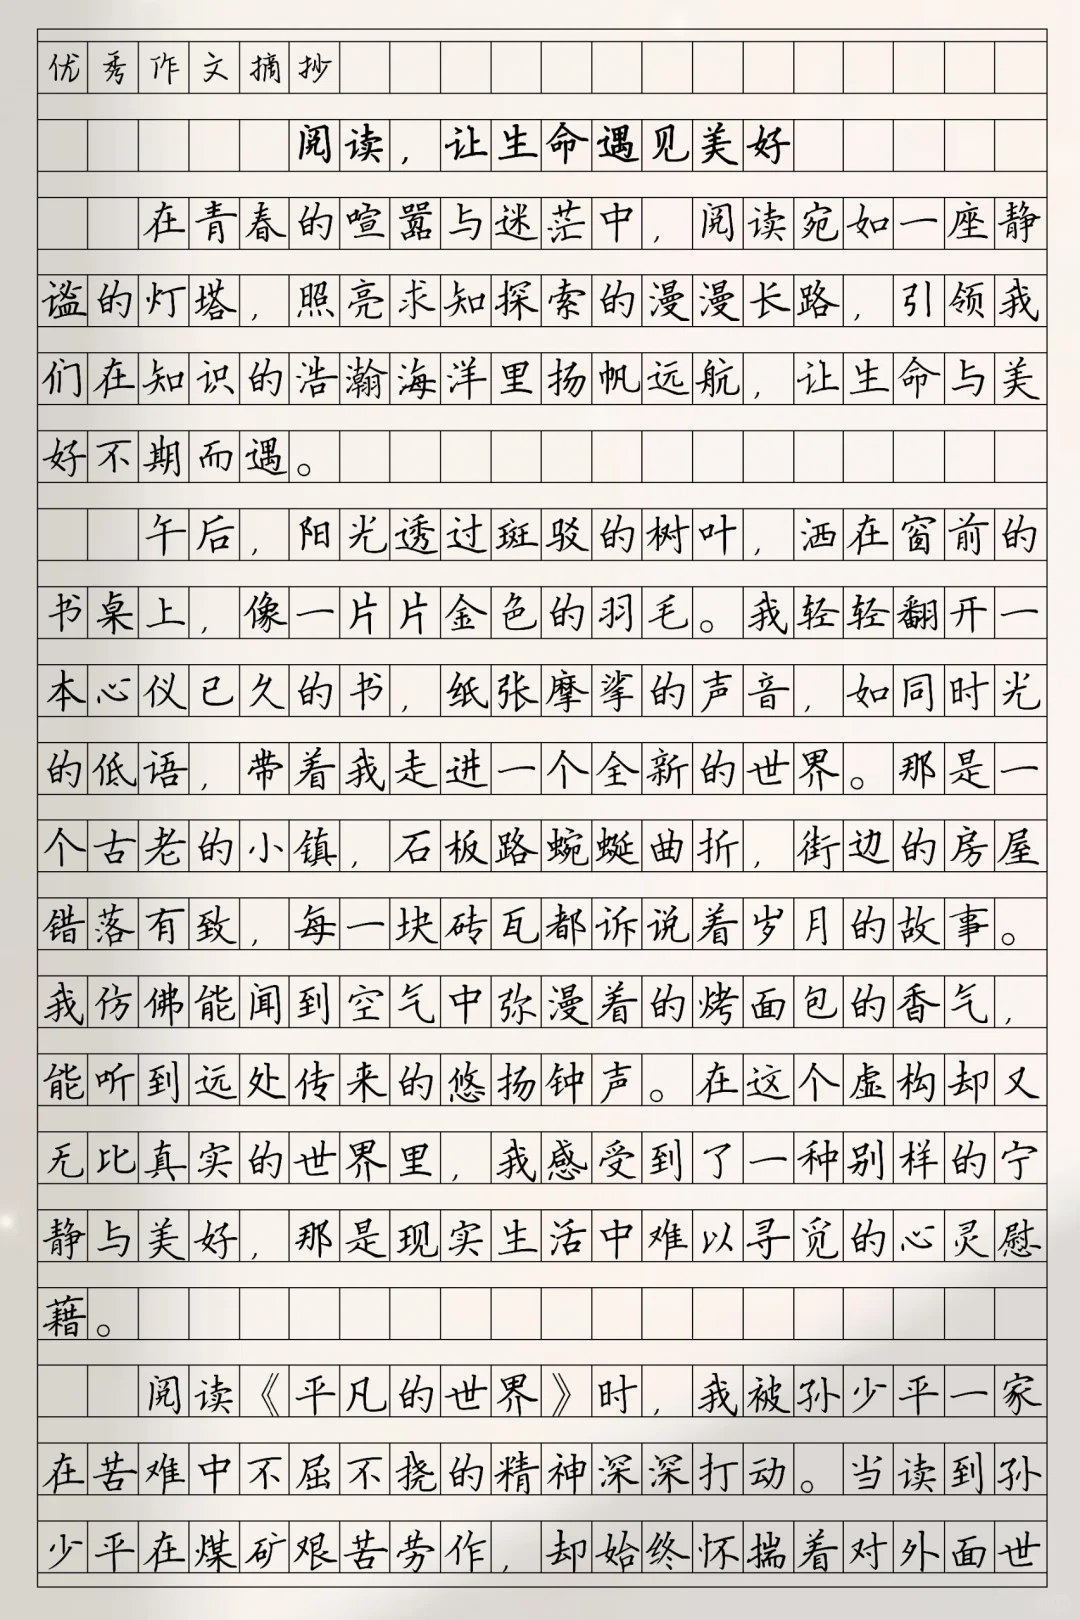 优秀作文摘抄
阅读，让生命遇见美好
在青春的喧嚣与迷茫中，阅读宛如一座静
谧的灯塔，照亮求知探索的漫漫长路，引领我
们在知识的浩瀚海洋里扬帆远航，让生命与美
好不期而遇。
午后，阳光透过斑驳的树叶，洒在窗前的
书桌上，像一片片金色的羽毛。我轻轻翻开一
本心仪已久的书，纸张摩挲的声音，如同时光
的低语，带着我走进一个全新的世界。那是一
个古老的小镇，石板路蜿蜒曲折，街边的房屋
错落有致，每一块砖瓦都诉说着岁月的故事。
我仿佛能闻到空气中弥漫着的烤面包的香气，
能听到远处传来的悠扬钟声。在这个虚构却又
无比真实的世界里，我感受到了一种别样的宁
静与美好，那是现实生活中难以寻觅的心灵慰
藉。
阅读《平凡的世界》时，我被孙少平一家
在苦难中不屈不挠的精神深深打动。当读到孙
少平在煤矿艰苦劳作，却始终怀揣着对外面世